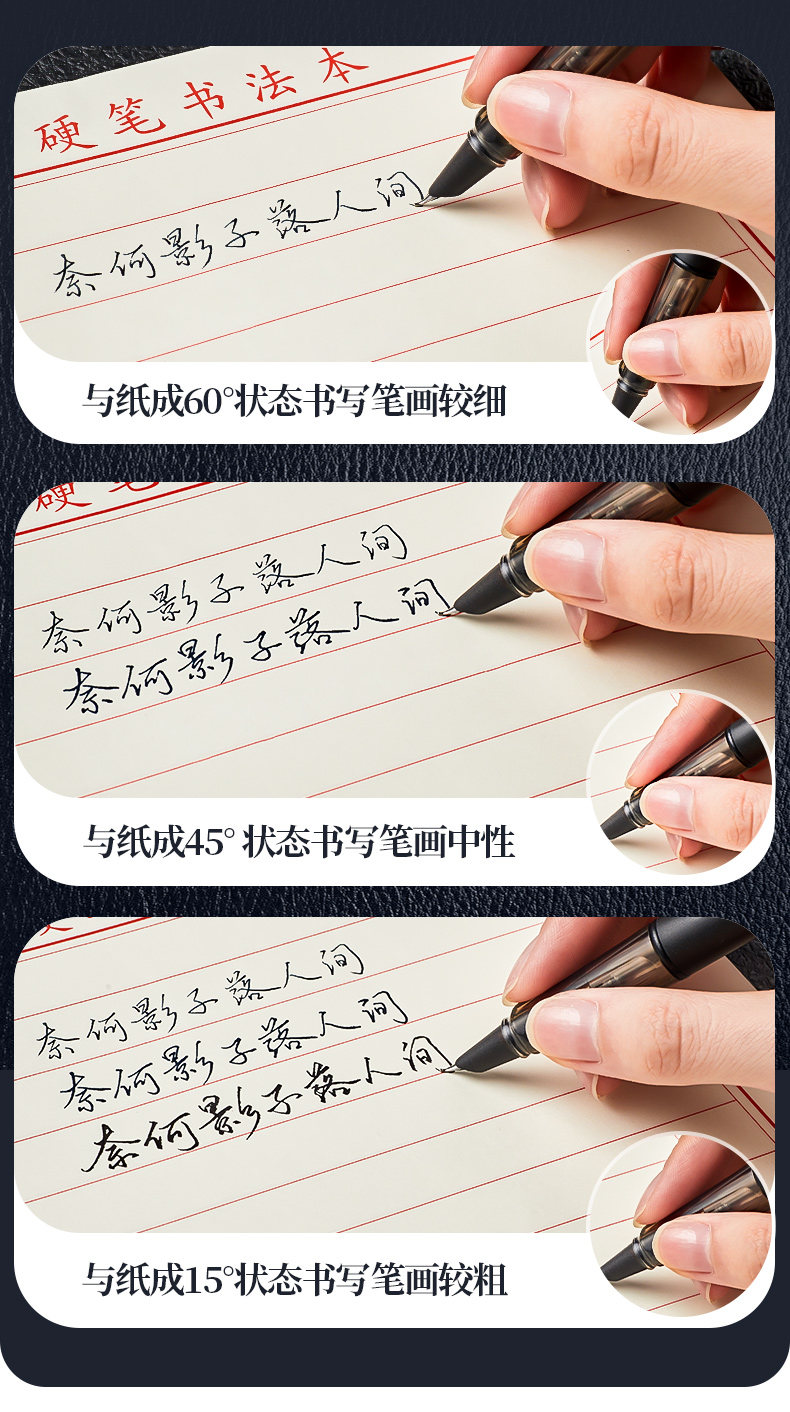 硬笔书法本
奈何影子落人间
与纸成60°状态书写笔画较细
硬笔
奈何影子落人间
奈何影子落人间
与纸成45° 状态书写笔画中性
奈何影子落人间
奈何影子落人间
奈何影子落人间
与纸成15°状态书写笔画较粗